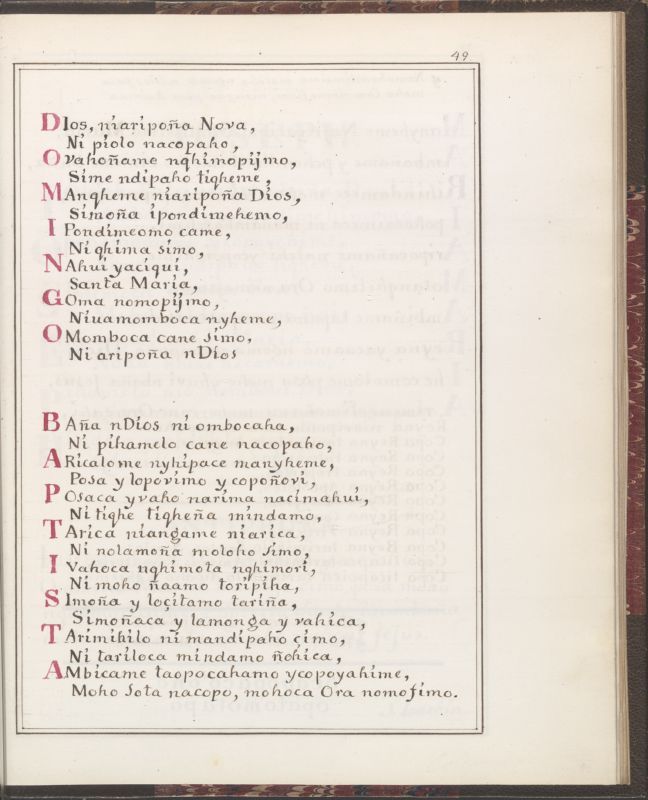 49
DIos, niaripoña Nova,
Ni piolo nacopaho,
Ovahoñame nqhimopijmo,
Sime ndipaho tiqheme,
MAnqheme niaripoña Dios,
Simoña ipondimehemo,
IPondimeomo came,
Ni qhima simo,
NAhui yaciqui,
Santa Maria,
GOma nomopijmo,
Niuamomboca nyheme,
OMomboca cane simo,
Ni aripoña nDios
BAña nDios ni ombocaha,
Ni pihamelo cane nacopaho,
ARicalome nyhipace manyheme,
Posa y lopovimo y copoñovi,
POsaca y vaho narima nacimahui,
Ni tiqhe tiqheña mindamo,
TArica niangame niarica,
Ni nolamoña moloho simo,
IVahoca nqhimota nghimori,
Ni moho ñaamo toripiha,
SImoña y loçitamo tariña,
Simoñaca y lamonga y vahica,
TArimihilo ni mandipaho çimo,
Ni tariloca mindamo ñohica,
AMbicame taopocahamo ycopoyahime,
Moho sota nacopo, mohoca Ora nomosimo.